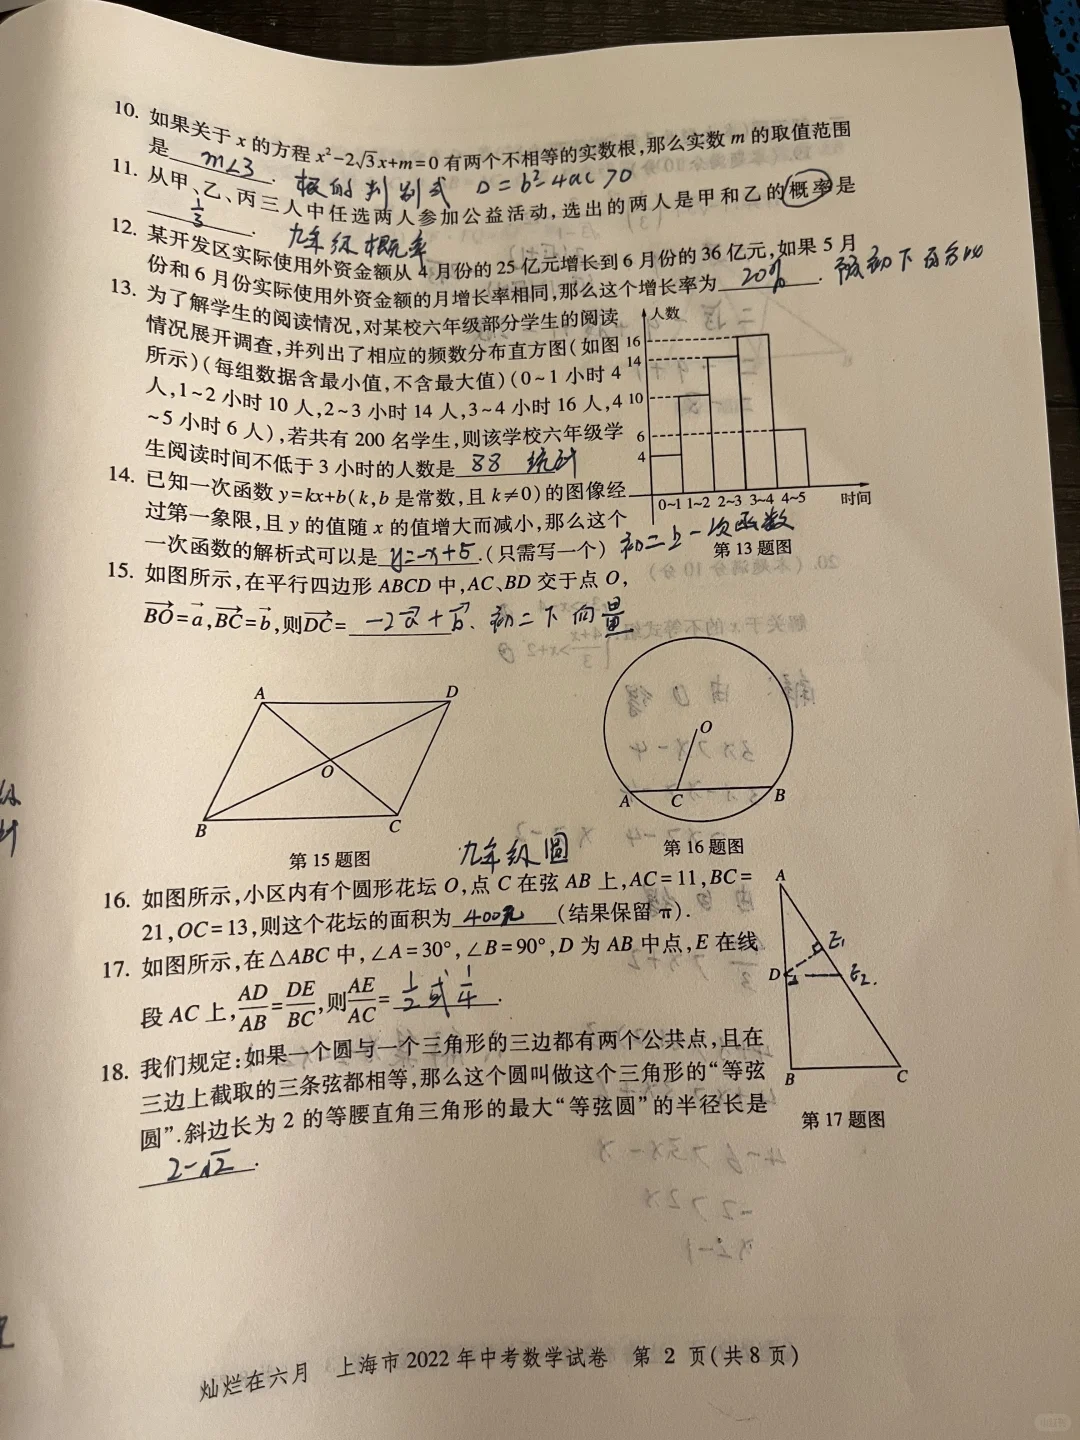 10. 如果关于 x 的方程 x²-2√3x+m=0 有两个不相等的实数根,那么实数 m 的取值范围
是 m<3 . 根的判别式 D=b²-4ac>0
11. 从甲、乙、丙三人中任选两人参加公益活动,选出的两人是甲和乙的概率是
1/3 . 九年级概率
12. 某开发区实际使用外资金额从 4 月份的 25 亿元增长到 6 月份的 36 亿元,如果 5 月
份和 6 月份实际使用外资金额的月增长率相同,那么这个增长率为 20% . 预初下百分比
13. 为了解学生的阅读情况,对某校六年级部分学生的阅读
情况展开调查,并列出了相应的频数分布直方图(如图
所示)(每组数据含最小值,不含最大值)(0~1 小时 4
人,1~2 小时 10 人,2~3 小时 14 人,3~4 小时 16 人,4
~5 小时 6 人),若共有 200 名学生,则该学校六年级学
生阅读时间不低于 3 小时的人数是 88 统计
人数
16
14
10
6
4
0~1 1~2 2~3 3~4 4~5 时间
第 13 题图
14. 已知一次函数 y=kx+b(k,b 是常数,且 k≠0)的图像经
过第一象限,且 y 的值随 x 的值增大而减小,那么这个
一次函数的解析式可以是 y=-x+5 .(只需写一个) 初二上一次函数
15. 如图所示,在平行四边形 ABCD 中,AC、BD 交于点 O,
BO=a,BC=b,则DC= -2a+b . 初二下向量
A D
O
B C
第 15 题图
O
A C B
第 16 题图
九年级圆
16. 如图所示,小区内有个圆形花坛 O,点 C 在弦 AB 上,AC=11,BC=
21,OC=13,则这个花坛的面积为 400π (结果保留 π).
17. 如图所示,在△ABC 中,∠A=30°,∠B=90°,D 为 AB 中点,E 在线
段 AC 上,AD/AB=DE/BC,则AE/AC= 1/2或1/4 .
A
E₁
D E₂.
B C
第 17 题图
18. 我们规定:如果一个圆与一个三角形的三边都有两个公共点,且在
三边上截取的三条弦都相等,那么这个圆叫做这个三角形的“等弦
圆”.斜边长为 2 的等腰直角三角形的最大“等弦圆”的半径长是
2-√2 .
灿烂在六月 上海市 2022 年中考数学试卷 第 2 页(共 8 页)